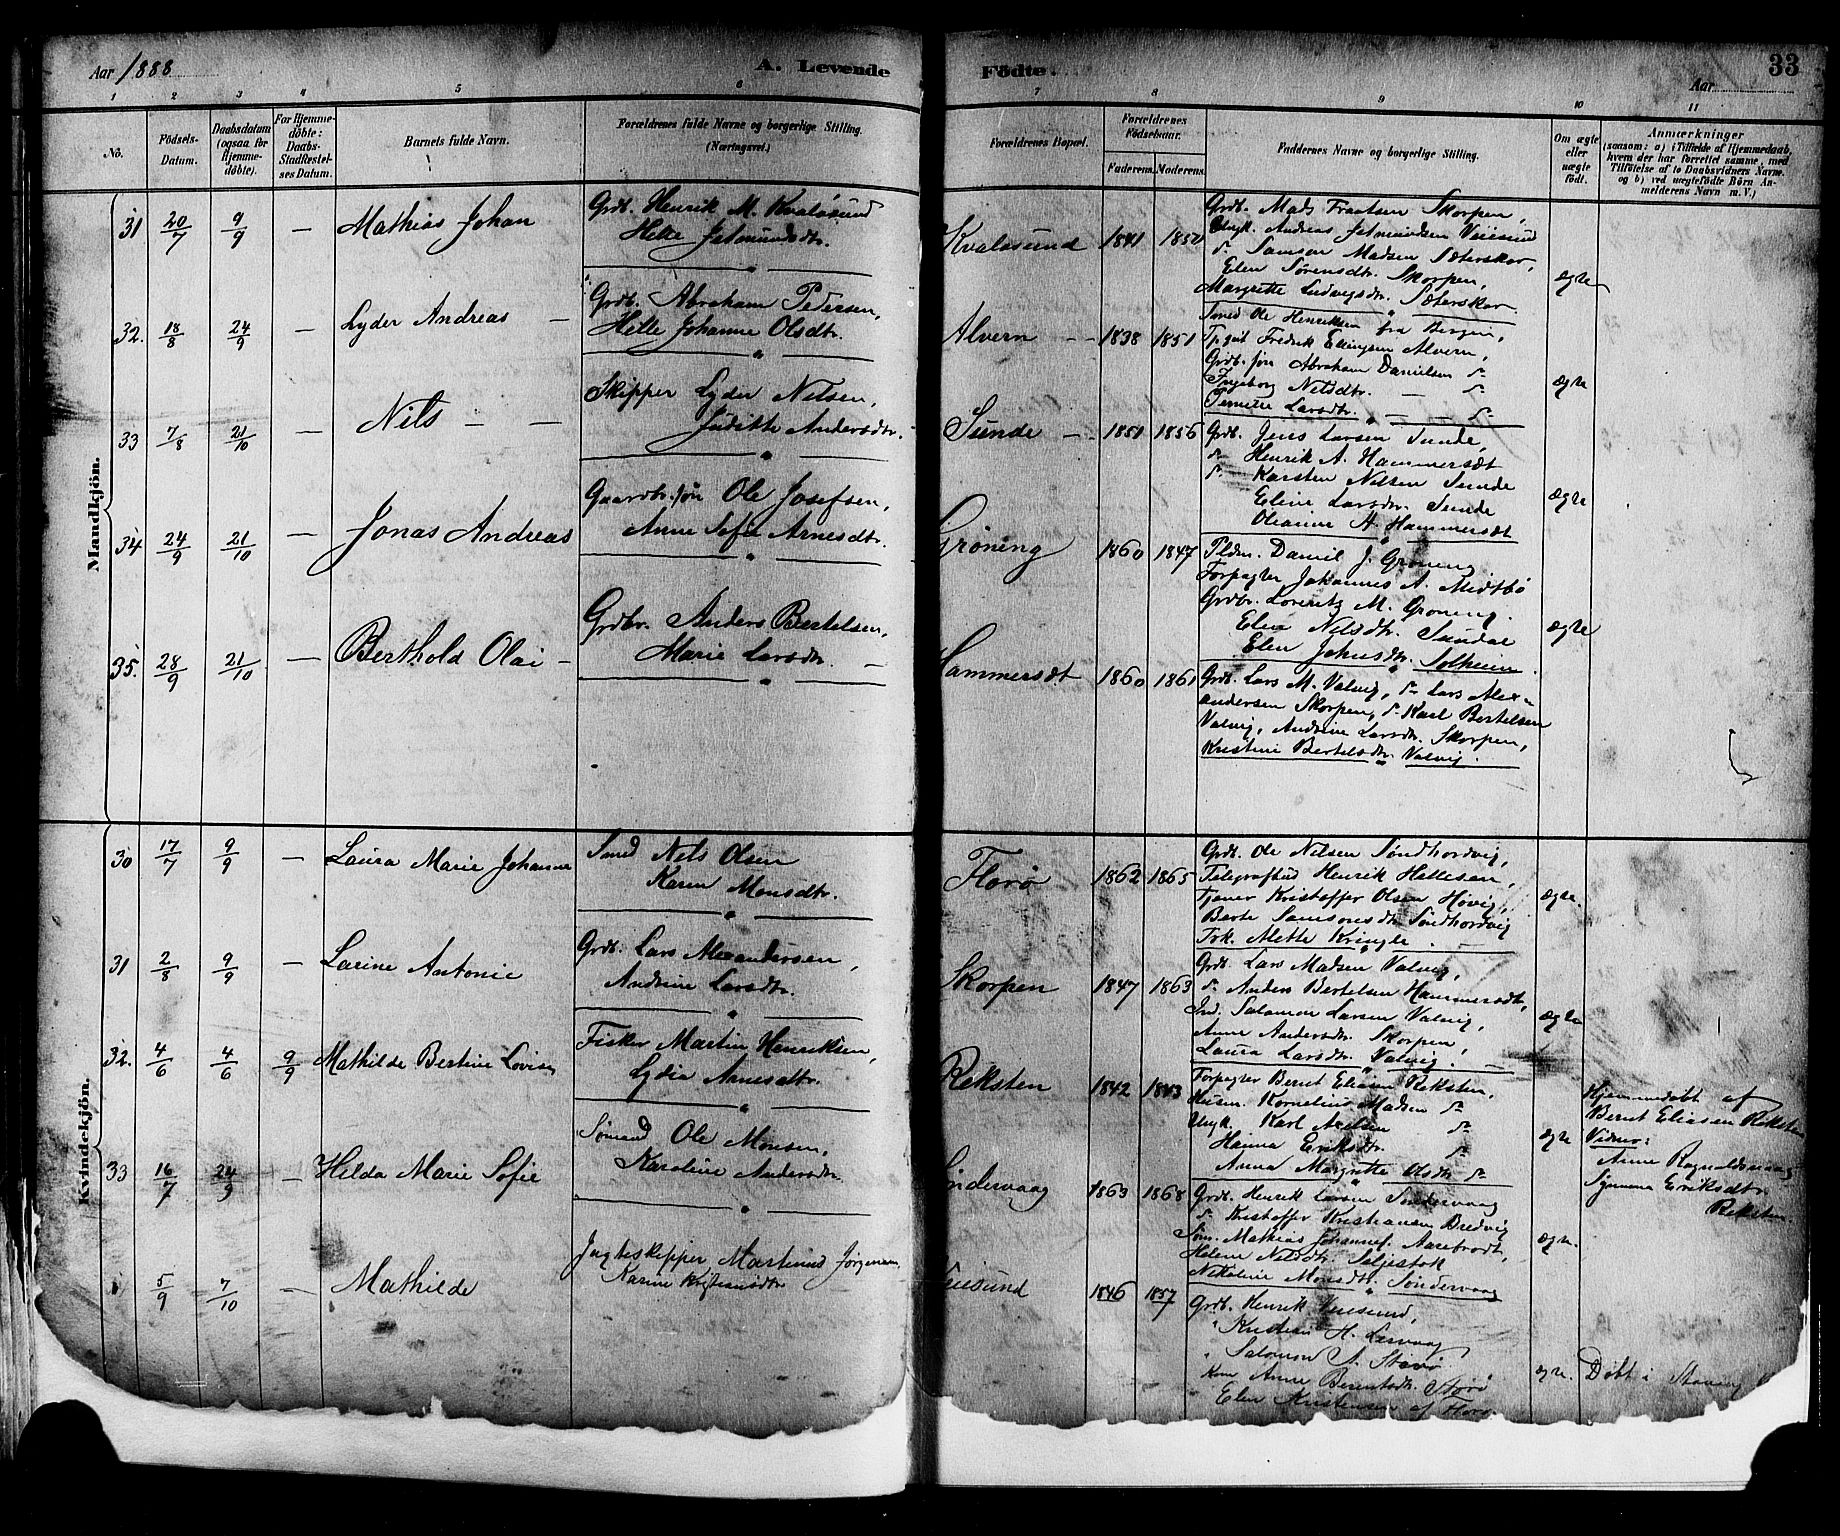 Aar 1888
A. Levende
Födte.
33
Aar
1 2 3 4 5 6 7 8 9 10 11
No.
Födsels-
Datum.
Daabsdatum
(ogsaa for
Hjemme-
döbte).
For Hjemme-
döbte:
Daabs-
Stadfæstel-
ses Datum.
Barnets fulde Navn.
Forældrenes fulde Navne og borgerlige Stilling.
(Næringsvei.)
Forældrenes Bopæl.
Forældrenes
Födselsaar.
Faderens. Moderens.
Faddernes Navne og borgerlige Stilling.
Om ægte
eller
uægte
födt.
Anmærkninger
(saasom: a) i Tilfælde af Hjemmedaab,
hvem der har forrettet samme, med
Tilföielse af to Daabsvidners Navne.
og b) ved uægtefödte Börn An-
melderens Navn m. V.)
Mandkjön.
31 20/7 9/9 — Mathias Johan
Grdb. Henrik M. Kvaløsund
Helle Jetmundsdtr.
Kvaløsund 1841 1850
Grdb. Mads Fraatsen Skorpen,
Ungk. Andreas Jetmundsen Veiesund
do Samson Madsen Sæterskor,
Elen Sørensdtr. Skorpen,
Margrette Ludvigsdtr. Sæterskor
ægte
32. 18/8 24/9 — Lyder Andreas —
Grdb. Abraham Pedersen,
Helle Johanne Olsdtr.
Alvern — 1838 1851
Smed Ole Henriksen fra Bergen,
Tj.gut Fredrik Ellingsen Alvern,
Grdb. søn Abraham Danielsen do
Ingeborg Nilsdtr. — do
Pernille Larsdtr. — do
ægte
33 7/8 21/10 — Nils — —
Skipper Lyder Nilsen,
Judithe Andersdtr.
Sunde — 1851 1856
Grdb. Jens Larsen Sunde,
do Henrik A. Hammersæt
do Karsten Nilsen Sunde
Eline Larsdtr. Sunde
Oleanne A. Hammersæt
ægte
34 24/9 21/10 — Jonas Andreas
Gaardbr.søn Ole Josefsen,
Anne Sofie Arnesdtr.
Grøning 1860 1847
Pldm. Daniel J. Grøning
Forpagter Johannes A. Midtbø
Grdbr. Lorentz M. Grøning.
Elen Nilsdtr. Sandal
Elen Johnsdtr. Solheim.
ægte
35. 28/9 21/10 — Berthold Olai —
Grdbr. Anders Bertelsen,
Marie Larsdtr. —
Hammersæt 1860 1861
Grdb. Lars M. Valvig, do Lars Alex-
andersen Skorpen, do Karl Bertelsen
Valvig, Andrine Larsdtr. Skorpen,
Kristine Bertelsdtr. Valvig.
Kvindekjön.
30 17/7 9/9 — Laura Marie Johanne
Smed Nils Olsen
Karen Monsdtr.
Florø 1862 1865
Grdb. Ole Nilsen Søndhordvig,
Telegrafbud Henrik Hellesen,
Tjener Kristoffer Olsen Høvig,
Berte Samsonsdtr. Søndhordvig
Frk. Alette Kringle.
ægte.
31 2/8 9/9 — Larine Antonie
Grdb. Lars Alexandersen,
Andrine Larsdtr.
Skorpen 1847 1863
Grdb. Lars Madsen Valvig,
do Anders Bertelsen Hammersæt,
Ind. Salomon Larsen Valvig,
Anne Andersdtr. Skorpen,
Laura Larsdtr. Valvig.
ægte
32. 4/6 4/6 9/9 Mathilde Bertine Lovise
Fisker Martin Henriksen,
Lydia Arnesdtr.
Reksten 1842 1843
Forpagter Bernt Eliasen Reksten,
Husm. Kornelius Madsen do
Ungk. Karl Axelsen do
Hanna Eriksdtr. do
Anna Margrette Olsdtr. do
ægte
Hjemmedøbt af
Bernt Eliasen Reksten
Vidner:
Anne Ragnaldsvaag
Synneva Eriksdtr.
Reksten.
33 16/7 24/9 — Helda Marie Sofie
Sømand Ole Monsen,
Karoline Andersdtr.
Sindervaag 1863 1868
Grdb. Henrik Larsen Sindervaag
do Kristoffer Kristiansen Bredvig
Søm. Mathias Johannes. Aarebrodt,
Helene Nilsdtr. Seljestok
Nikoline Monsdtr. Søndervaag
ægte.
5/9 7/10 — Mathilde
Jagteskipper Martinus Jørgensen
Karine Kristiansdtr
Veiesund 1846 1857
Grdb. Henrik Veiesund,
" Kristian H. Lervaag
" Salomon A. Stavø
Kone Anne Berentsdtr. Storø
Elen Kristensen af Florø.
ægte. Døbt i Stavang